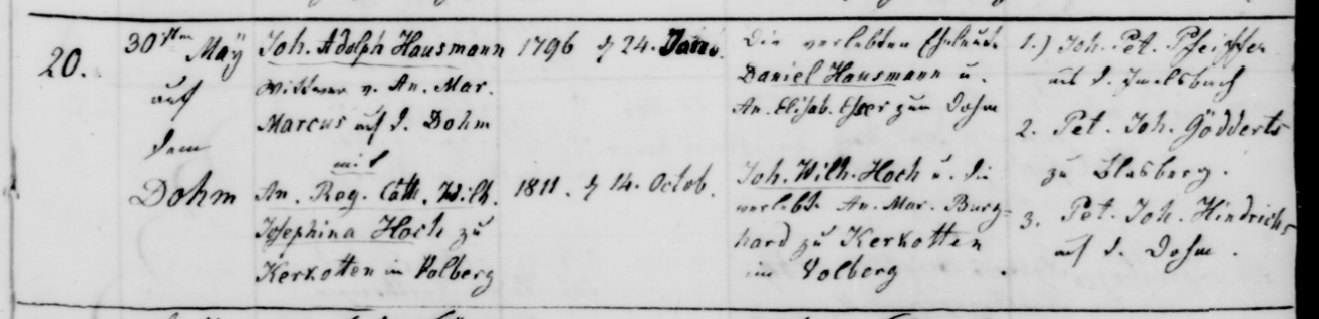 20.
30sten May
auf
dem
Dohm
Joh. Adolph Hausmann
Wittwer v. An. Mar.
Marcus auf d. Dohm
mit
An. Reg. Cath. Wilh.
Josephina Hoch zu
Kerkotten in Volberg
1796 d 24. Janu.
1811. d 14. Octob.
Die verlebten Eheleute
Daniel Hausmann u.
An. Elisab. Eßer zum Dohm
Joh. Wilh. Hoch u. die
verlebt. An. Mar. Burg=
hard zu Kerkotten
im Volberg
1.) Joh. Pet. Pfeiffer
aus d.
2. Pet. Joh. Gödderts
zu
3. Pet. Joh. Hindrichs
auf d. Dohm.